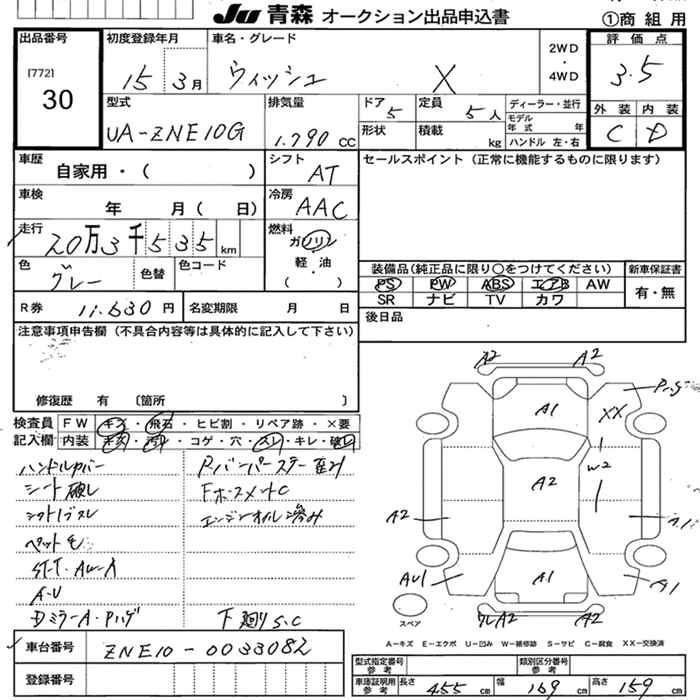 JU 青森 オークション出品申込書
①商 組 用
出品番号
[772]
30
初度登録年月
15 3月
車名・グレード
ウィッシュ X
2WD
・
4WD
評 価 点
3.5
外 装 内 装
C D
型式
UA-ZNE10G
排気量
1.790 CC
ドア 5
定員 5 人
形状
積載 kg
ディーラー・並行
モデル年式 年
ハンドル 左・右
車歴
自家用 ・ ( )
シフト AT
セールスポイント(正常に機能するものに限ります)
車検
年 月( 日)
冷房 AAC
走行
20万3千535 km
燃料
ガソリン
軽・油
( )
色 グレー
色替
色コード
装備品(純正品に限り○をつけてください)
新車保証書
PS PW ABS エアB AW
有・無
SR ナビ TV カワ
R券 11.630 円
名変期限 月 日
後日品
注意事項申告欄(不具合内容等は具体的に記入して下さい)
修復歴 有 〔箇所 〕
検査員記入欄
FW キズ・飛石・ヒビ割・リペア跡・×要
内装 キズ・汚れ・コゲ・穴・スレ・キレ・破れ
ハンドルカバー
Rバンパーステー歪み
シート破れ
FホースメントC
シフトノブスレ
エンジンオイル滲み
ペット毛
A-U
DミラーA・Pハゲ
下廻りS.C
A2 A2
A1
XX
W2
A2
A2
AU1
A1
A1
A2
スペア
A-キズ E-エクボ U-凹み W-補修跡 S-サビ C-腐食 XX-交換済
車台番号
ZNE10-0033082
登録番号
型式指定番号 参考
類別区分番号 参考
車庫証明用 参考
長さ 455 cm 幅 169 cm 高さ 159 cm